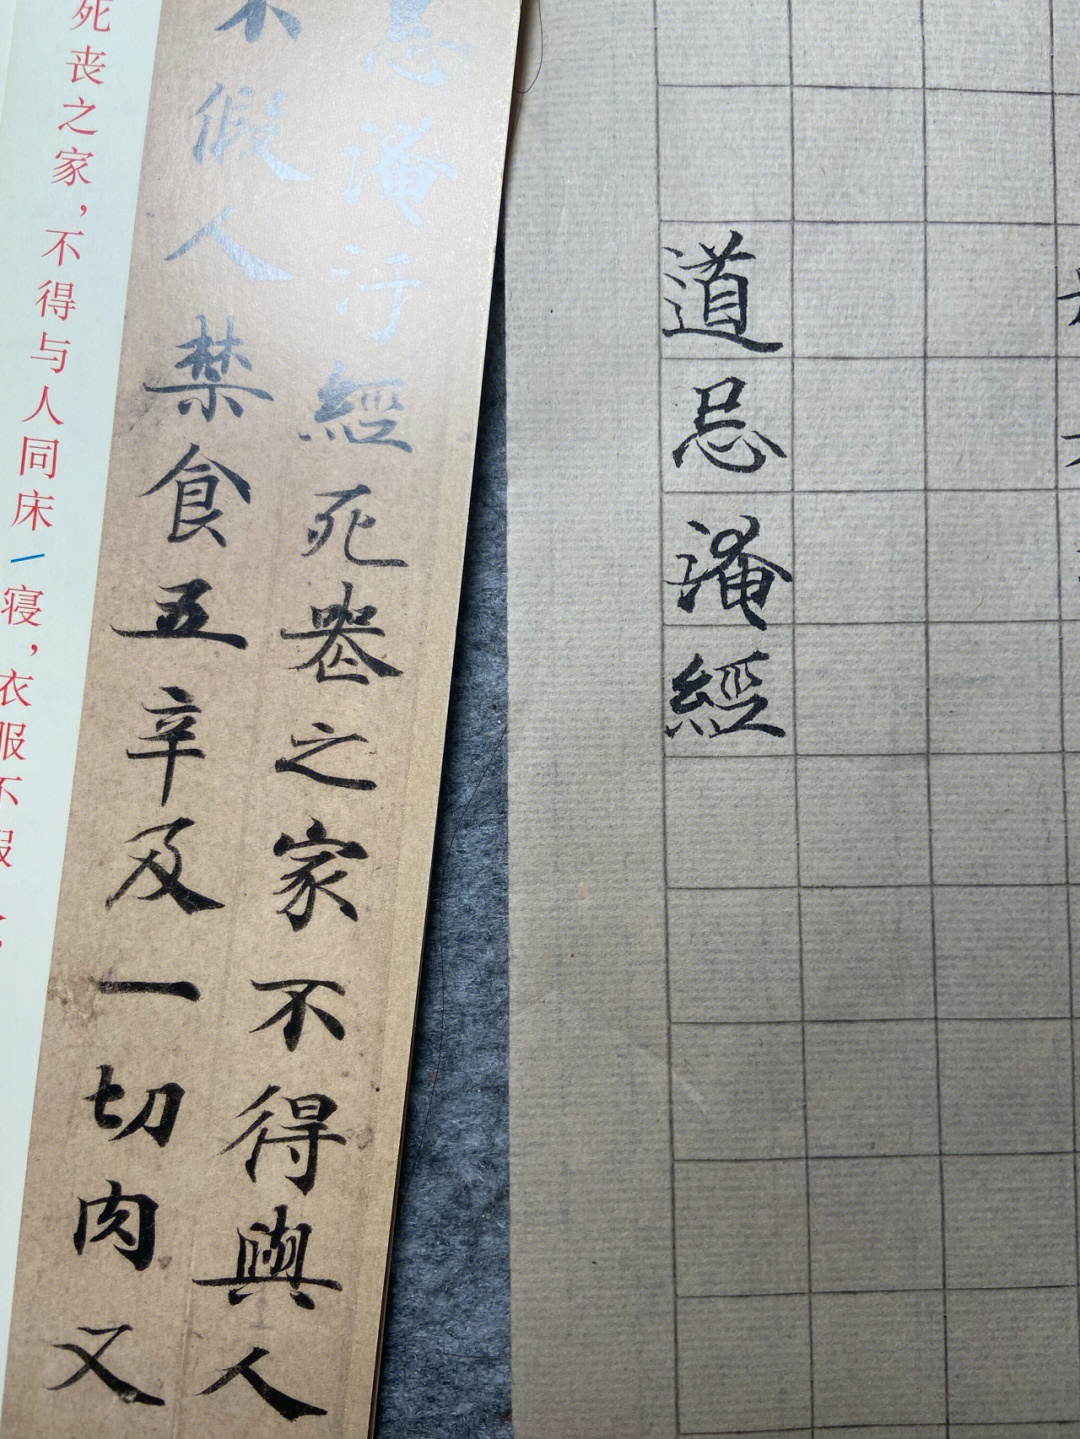 道忌淹經
忌淹汙經死喪之家不得與人
不假人禁食五辛及一切肉又
死丧之家，不得与人同床/寝，衣服不假人，